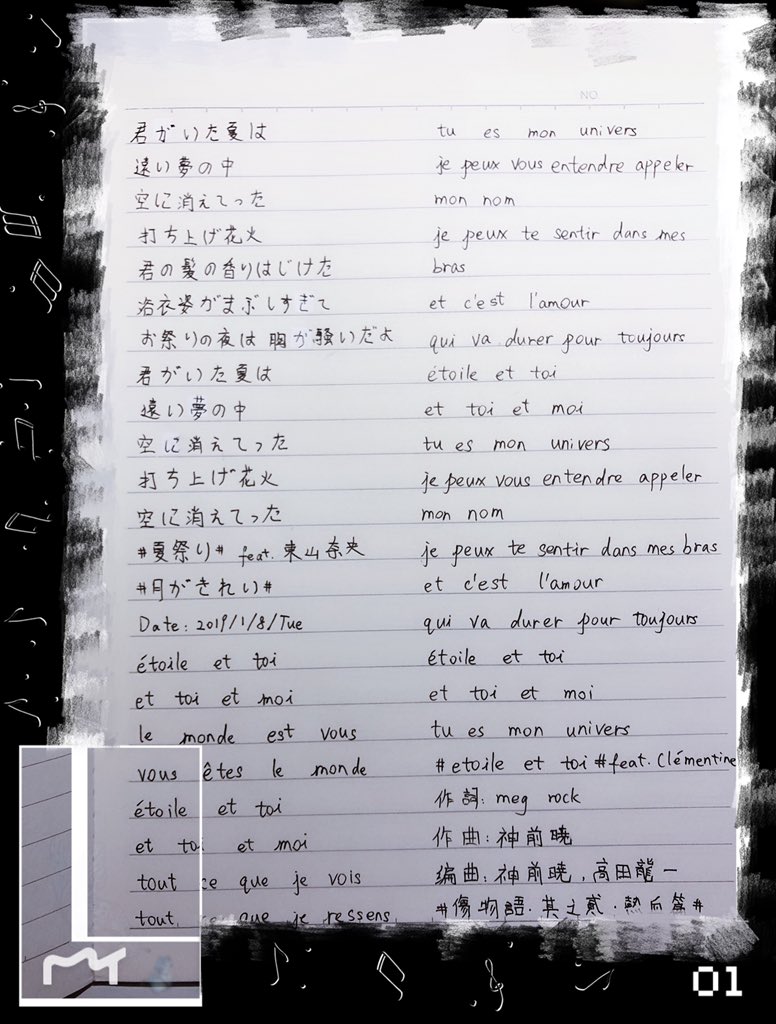 NO
君がいた夏は
遠い夢の中
空に消えてった
打ち上げ花火
君の髪の香りはじけた
浴衣姿がまぶしすぎて
お祭りの夜は胸が騒いだよ
君がいた夏は
遠い夢の中
空に消えてった
打ち上げ花火
空に消えてった
#夏祭り# feat. 東山奈央
#月がきれい#
Date: 2019/1/8/Tue
étoile et toi
et toi et moi
le monde est vous
vous êtes le monde
étoile et toi
et toi et moi
tout ce que je vois
tout ce que je ressens
tu es mon univers
je peux vous entendre appeler
mon nom
je peux te sentir dans mes
bras
et c'est l'amour
qui va durer pour toujours
étoile et toi
et toi et moi
tu es mon univers
je peux vous entendre appeler
mon nom
je peux te sentir dans mes bras
et c'est l'amour
qui va durer pour toujours
étoile et toi
et toi et moi
tu es mon univers
#etoile et toi#feat. Clémentine
作詞: meg rock
作曲: 神前暁
編曲: 神前暁, 高田龍一
#傷物語·其之貳·熱血篇#
01